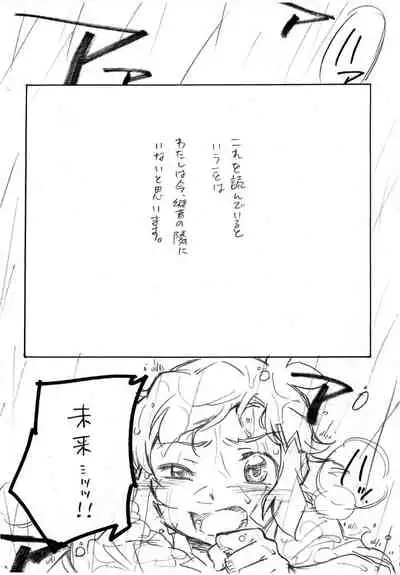 ハァ
アア
これを読んでいると
いうことは
わたしは今、縦音の隣に
いないと思います。
ア
未来
ミッッ!!
ハッ